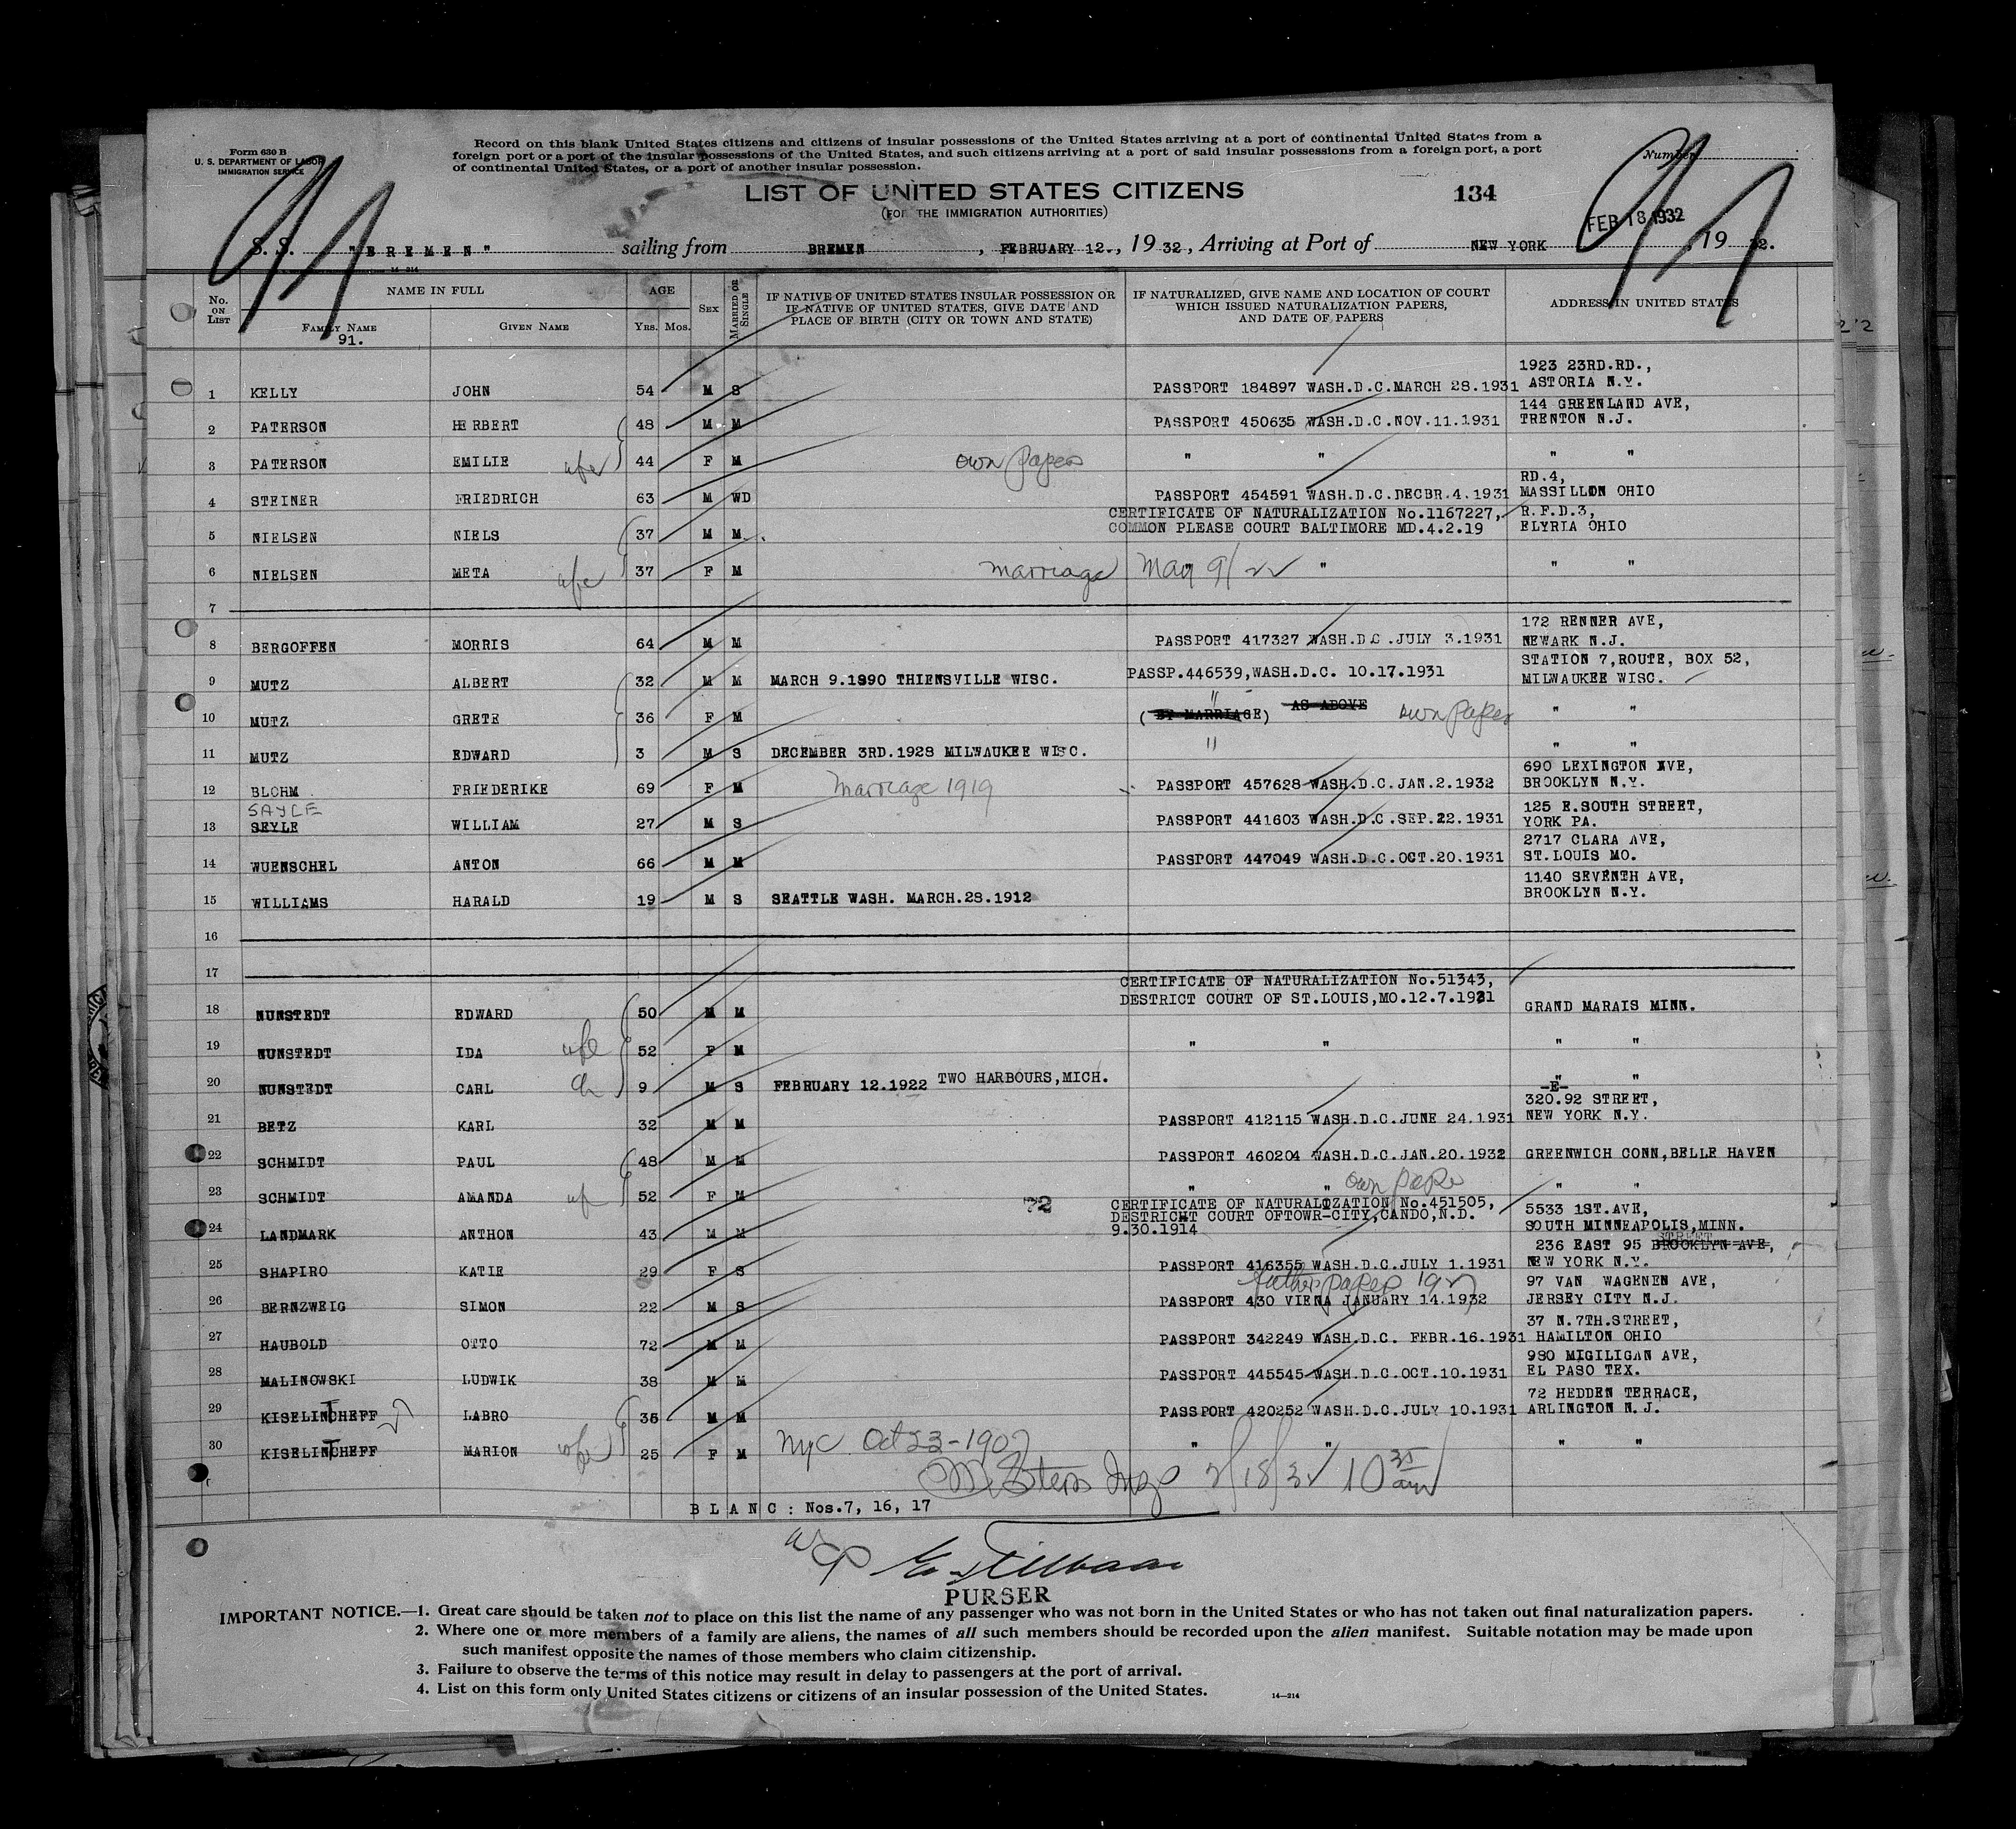 Form 630 B
U. S. DEPARTMENT OF LABOR
IMMIGRATION SERVICE
Record on this blank United States citizens and citizens of insular possessions of the United States arriving at a port of continental United States from a
foreign port or a port of the insular possessions of the United States, and such citizens arriving at a port of said insular possessions from a foreign port, a port
of continental United States, or a port of another insular possession.
Number
LIST OF UNITED STATES CITIZENS
(FOR THE IMMIGRATION AUTHORITIES)
134
91
91
FEB 18 1932
S. S. "BREMEN" sailing from BREMEN, FEBRUARY 12., 19 32, Arriving at Port of NEW YORK, 19 32.
14—214
No. ON LIST
NAME IN FULL
FAMILY NAME
GIVEN NAME
91.
AGE
YRS. MOS.
SEX
MARRIED OR SINGLE
IF NATIVE OF UNITED STATES INSULAR POSSESSION OR
IF NATIVE OF UNITED STATES, GIVE DATE AND
PLACE OF BIRTH (CITY OR TOWN AND STATE)
IF NATURALIZED, GIVE NAME AND LOCATION OF COURT
WHICH ISSUED NATURALIZATION PAPERS,
AND DATE OF PAPERS
ADDRESS IN UNITED STATES
1923 23RD.RD.,
1 KELLY JOHN 54 M S PASSPORT 184897 WASH.D.C.MARCH 28.1931 ASTORIA N.Y.
144 GREENLAND AVE,
2 PATERSON HERBERT 48 M M PASSPORT 450635 WASH.D.C.NOV.11.1931 TRENTON N.J.
3 PATERSON EMILIE wife 44 F M own papers " " " "
RD.4,
4 STEINER FRIEDRICH 63 M WD PASSPORT 454591 WASH.D.C.DECBR.4.1931 MASSILLON OHIO
CERTIFICATE OF NATURALIZATION No.1167227, R.F.D.3,
5 NIELSEN NIELS 37 M M COMMON PLEASE COURT BALTIMORE MD.4.2.19 ELYRIA OHIO
6 NIELSEN META wife 37 F M marriage May 9/22 " " " "
7
172 RENNER AVE,
8 BERGOFFEN MORRIS 64 M M PASSPORT 417327 WASH.D.C.JULY 3.1931 NEWARK N.J.
STATION 7,ROUTE, BOX 52,
9 MUTZ ALBERT 32 M M MARCH 9.1890 THIENSVILLE WISC. PASSP.446539,WASH.D.C. 10.17.1931 MILWAUKEE WISC.
10 MUTZ GRETE 36 F M " (BY MARRIAGE) AS ABOVE own papers " "
11 MUTZ EDWARD 3 M S DECEMBER 3RD.1928 MILWAUKEE WISC. " " "
690 LEXINGTON AVE,
12 BLOHM FRIEDERIKE 69 F M marriage 1919 PASSPORT 457628 WASH.D.C.JAN.2.1932 BROOKLYN N.Y.
SAYLE 125 E.SOUTH STREET,
13 SEYLE WILLIAM 27 M S PASSPORT 441603 WASH.D.C.SEP.22.1931 YORK PA.
2717 CLARA AVE,
14 WUENSCHEL ANTON 66 M M PASSPORT 447049 WASH.D.C.OCT.20.1931 ST.LOUIS MO.
1140 SEVENTH AVE,
15 WILLIAMS HARALD 19 M S SEATTLE WASH. MARCH.28.1912 BROOKLYN N.Y.
16
17
CERTIFICATE OF NATURALIZATION No.51343,
DESTRICT COURT OF ST.LOUIS,MO.12.7.1921
18 NUNSTEDT EDWARD 50 M M GRAND MARAIS MINN.
19 NUNSTEDT IDA wife 52 F M " " " "
20 NUNSTEDT CARL Ch 9 M S FEBRUARY 12.1922 TWO HARBOURS,MICH. " "
-E-
320.92 STREET,
21 BETZ KARL 32 M M PASSPORT 412115 WASH.D.C.JUNE 24.1931 NEW YORK N.Y.
22 SCHMIDT PAUL 48 M M PASSPORT 460204 WASH.D.C.JAN.20.1932 GREENWICH CONN,BELLE HAVEN
23 SCHMIDT AMANDA wf 52 F M " " own papers " "
72 CERTIFICATE OF NATURALIZATION No.451505, 5533 1ST.AVE,
DESTRICHT COURT OFTOWR-CITY,CANDO,N.D.
24 LANDMARK ANTHON 43 M M 9.30.1914 SOUTH MINNEAPOLIS,MINN.
STREET
236 EAST 95 BROOKLYN AVE,
25 SHAPIRO KATIE 29 F S PASSPORT 416355 WASH.D.C.JULY 1.1931 NEW YORK N.Y.
fathers papers 97 VAN WAGENEN AVE,
26 BERNZWEIG SIMON 22 M S PASSPORT 430 VIENA JANUARY 14.1932 JERSEY CITY N.J.
37 N.7TH.STREET,
27 HAUBOLD OTTO 72 M M PASSPORT 342249 WASH.D.C. FEBR.16.1931 HAMILTON OHIO
980 MIGILIGAN AVE,
28 MALINOWSKI LUDWIK 38 M M PASSPORT 445545 WASH.D.C.OCT.10.1931 EL PASO TEX.
72 HEDDEN TERRACE,
29 KISELINTCHEFF LABRO 36 M M PASSPORT 420252 WASH.D.C.JULY 10.1931 ARLINGTON N.J.
30 KISELINTCHEFF MARION wife 25 F M NYC Oct 23-1907 " " " "
Insp 2/18/32 10 35 am
BLANC: Nos.7, 16, 17
PURSER
IMPORTANT NOTICE.—1. Great care should be taken not to place on this list the name of any passenger who was not born in the United States or who has not taken out final naturalization papers.
2. Where one or more members of a family are aliens, the names of all such members should be recorded upon the alien manifest. Suitable notation may be made upon
such manifest opposite the names of those members who claim citizenship.
3. Failure to observe the terms of this notice may result in delay to passengers at the port of arrival.
4. List on this form only United States citizens or citizens of an insular possession of the United States.
14—214